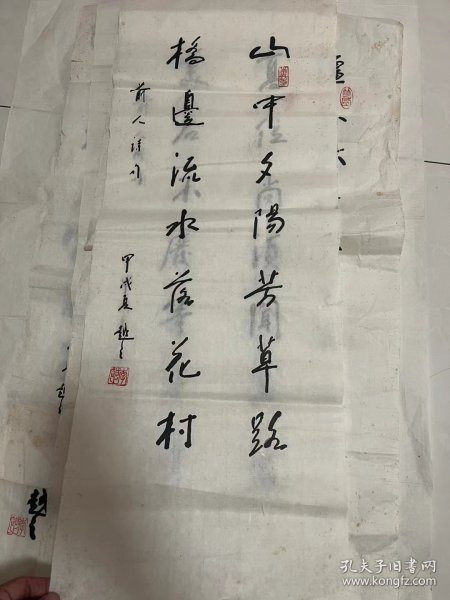 山中夕陽芳草路
橋邊流水落花村
前人詩句
甲戌夏 越之
孔夫子旧书网
www.kongfz.com